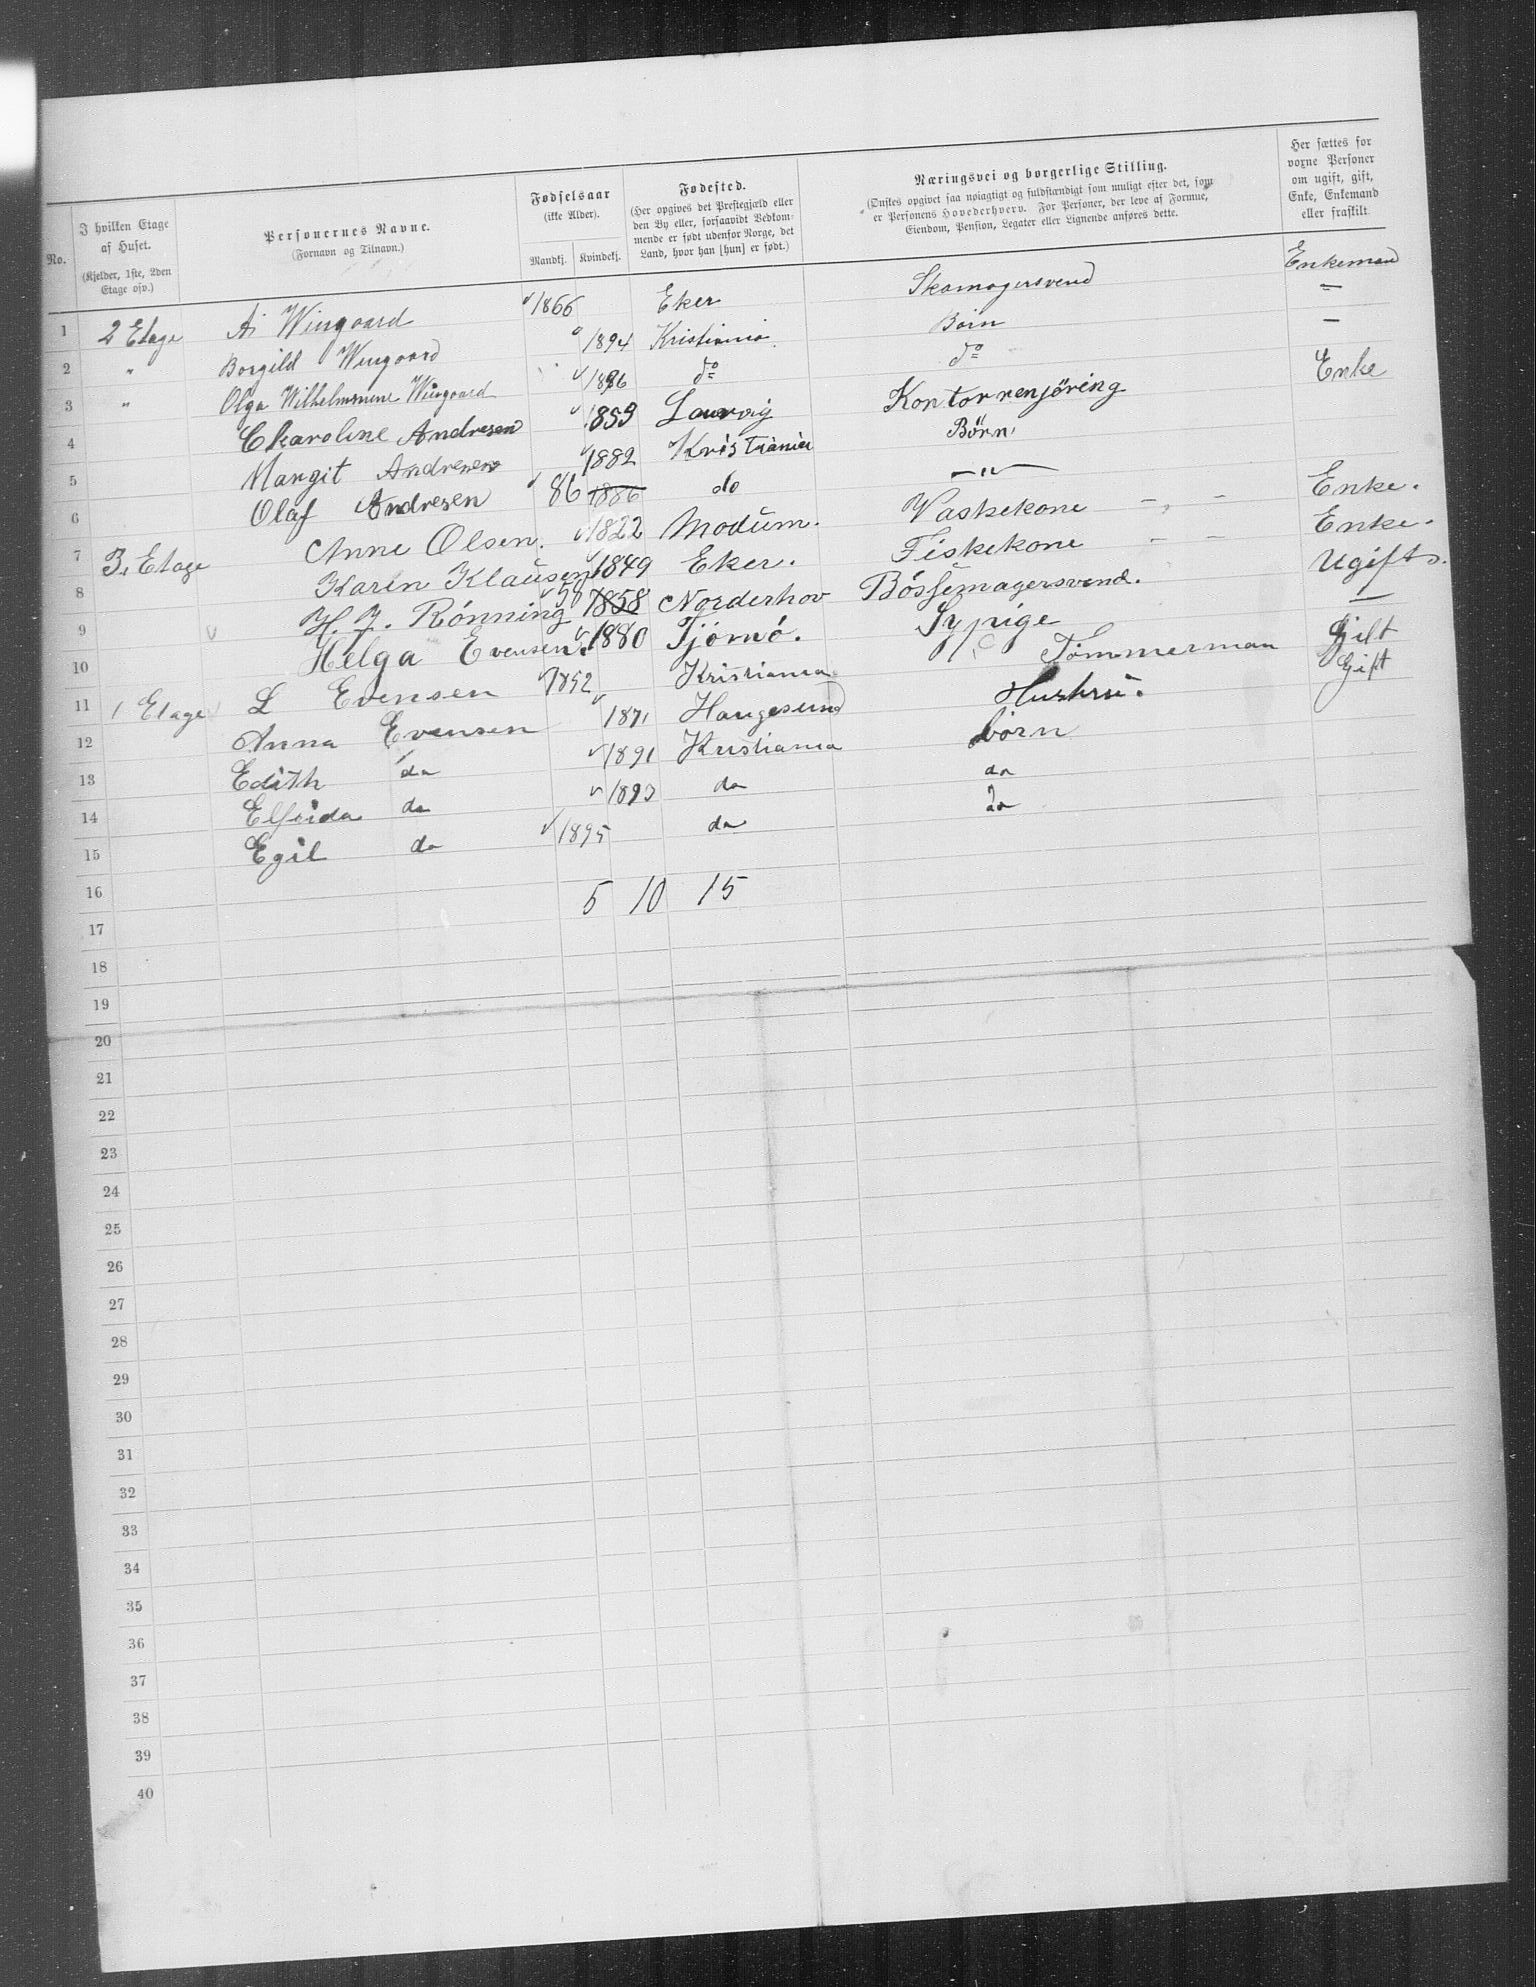 No. | I hvilken Etage af Huset. (Kjelder, 1ste, 2den Etage osv.) | Personernes Navne. (Fornavn og Tilnavn.) | Fødselsaar (ikke Alder). Mandkj. Kvindekj. | Fødested. (Her opgives det Prestegjæld eller den By eller, forsaavidt Vedkommende er født udenfor Norge, det Land, hvor han [hun] er født.) | Næringsvei og borgerlige Stilling. (Ønskes opgivet saa nøiagtigt og fuldstændigt som muligt efter det, som er Personens Hovederhverv. For Personer, der leve af Formue, Eiendom, Pension, Legater eller Lignende anføres dette. | Her sættes for voxne Personer om ugift, gift, Enke, Enkemand eller fraskilt
1 2 Etage Ai Wingaard 1866 Eker Skomagersvend Enkeman
2 " Borgild Wingaard 1894 Kristiania Børn —
3 " Olga Wilhelmmine Wingaard 1886 do do —
4 Ckaroline Andresen 1853 Laurvig Kontorrenjöring Enke
5 Margit Andresen 1882 Kristiania Børn
6 Olaf Andresen 86 1886 do —"—
7 3. Etage Anne Olsen. 1822 Modum. Vaskekone - - Enke.
8 Karen Klausen 1849 Eker. Fiskekone - - Enke.
9 H. J. Rónning 58 1858 Norderhov Bóssemagersvend. Ugift.
10 Helga Evensen. 1880 Tjómó. Sypige —
11 1 Etage L Evensen 1852 Kristiania Tómmerman Gift
12 Anna Evensen 1871 Haugesund Hustru. Gift
13 Edith do 1891 Kristiania børn
14 Elfrida do 1893 do do
15 Egil do 1895 do do
16 5 10 15
17
18
19
20
21
22
23
24
25
26
27
28
29
30
31
32
33
34
35
36
37
38
39
40